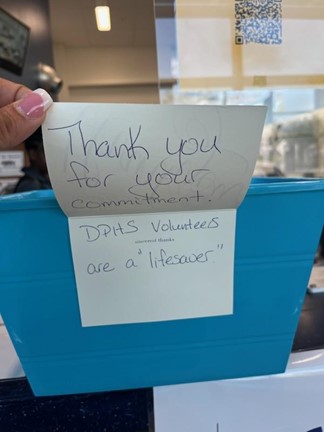 Thank you
for your
commitment.
DPHS Volunteers
universal thanks
are a "lifesaver"